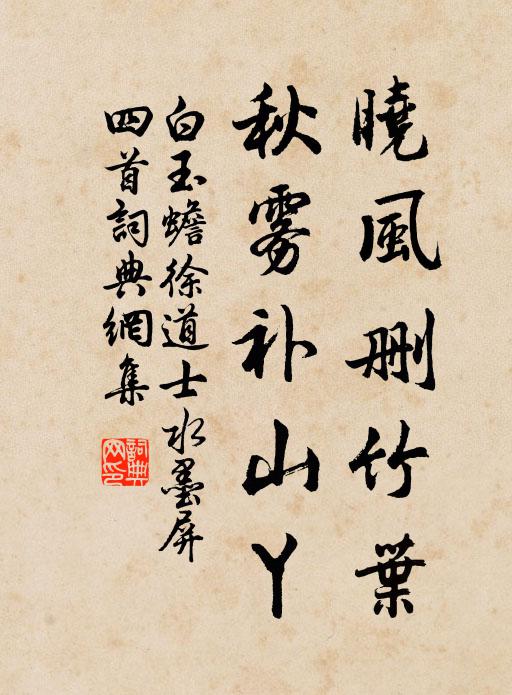 曉風刪竹葉
秋雾补山丫
白玉蟾徐道士水墨屏
四首詞典網集
詞典
网印